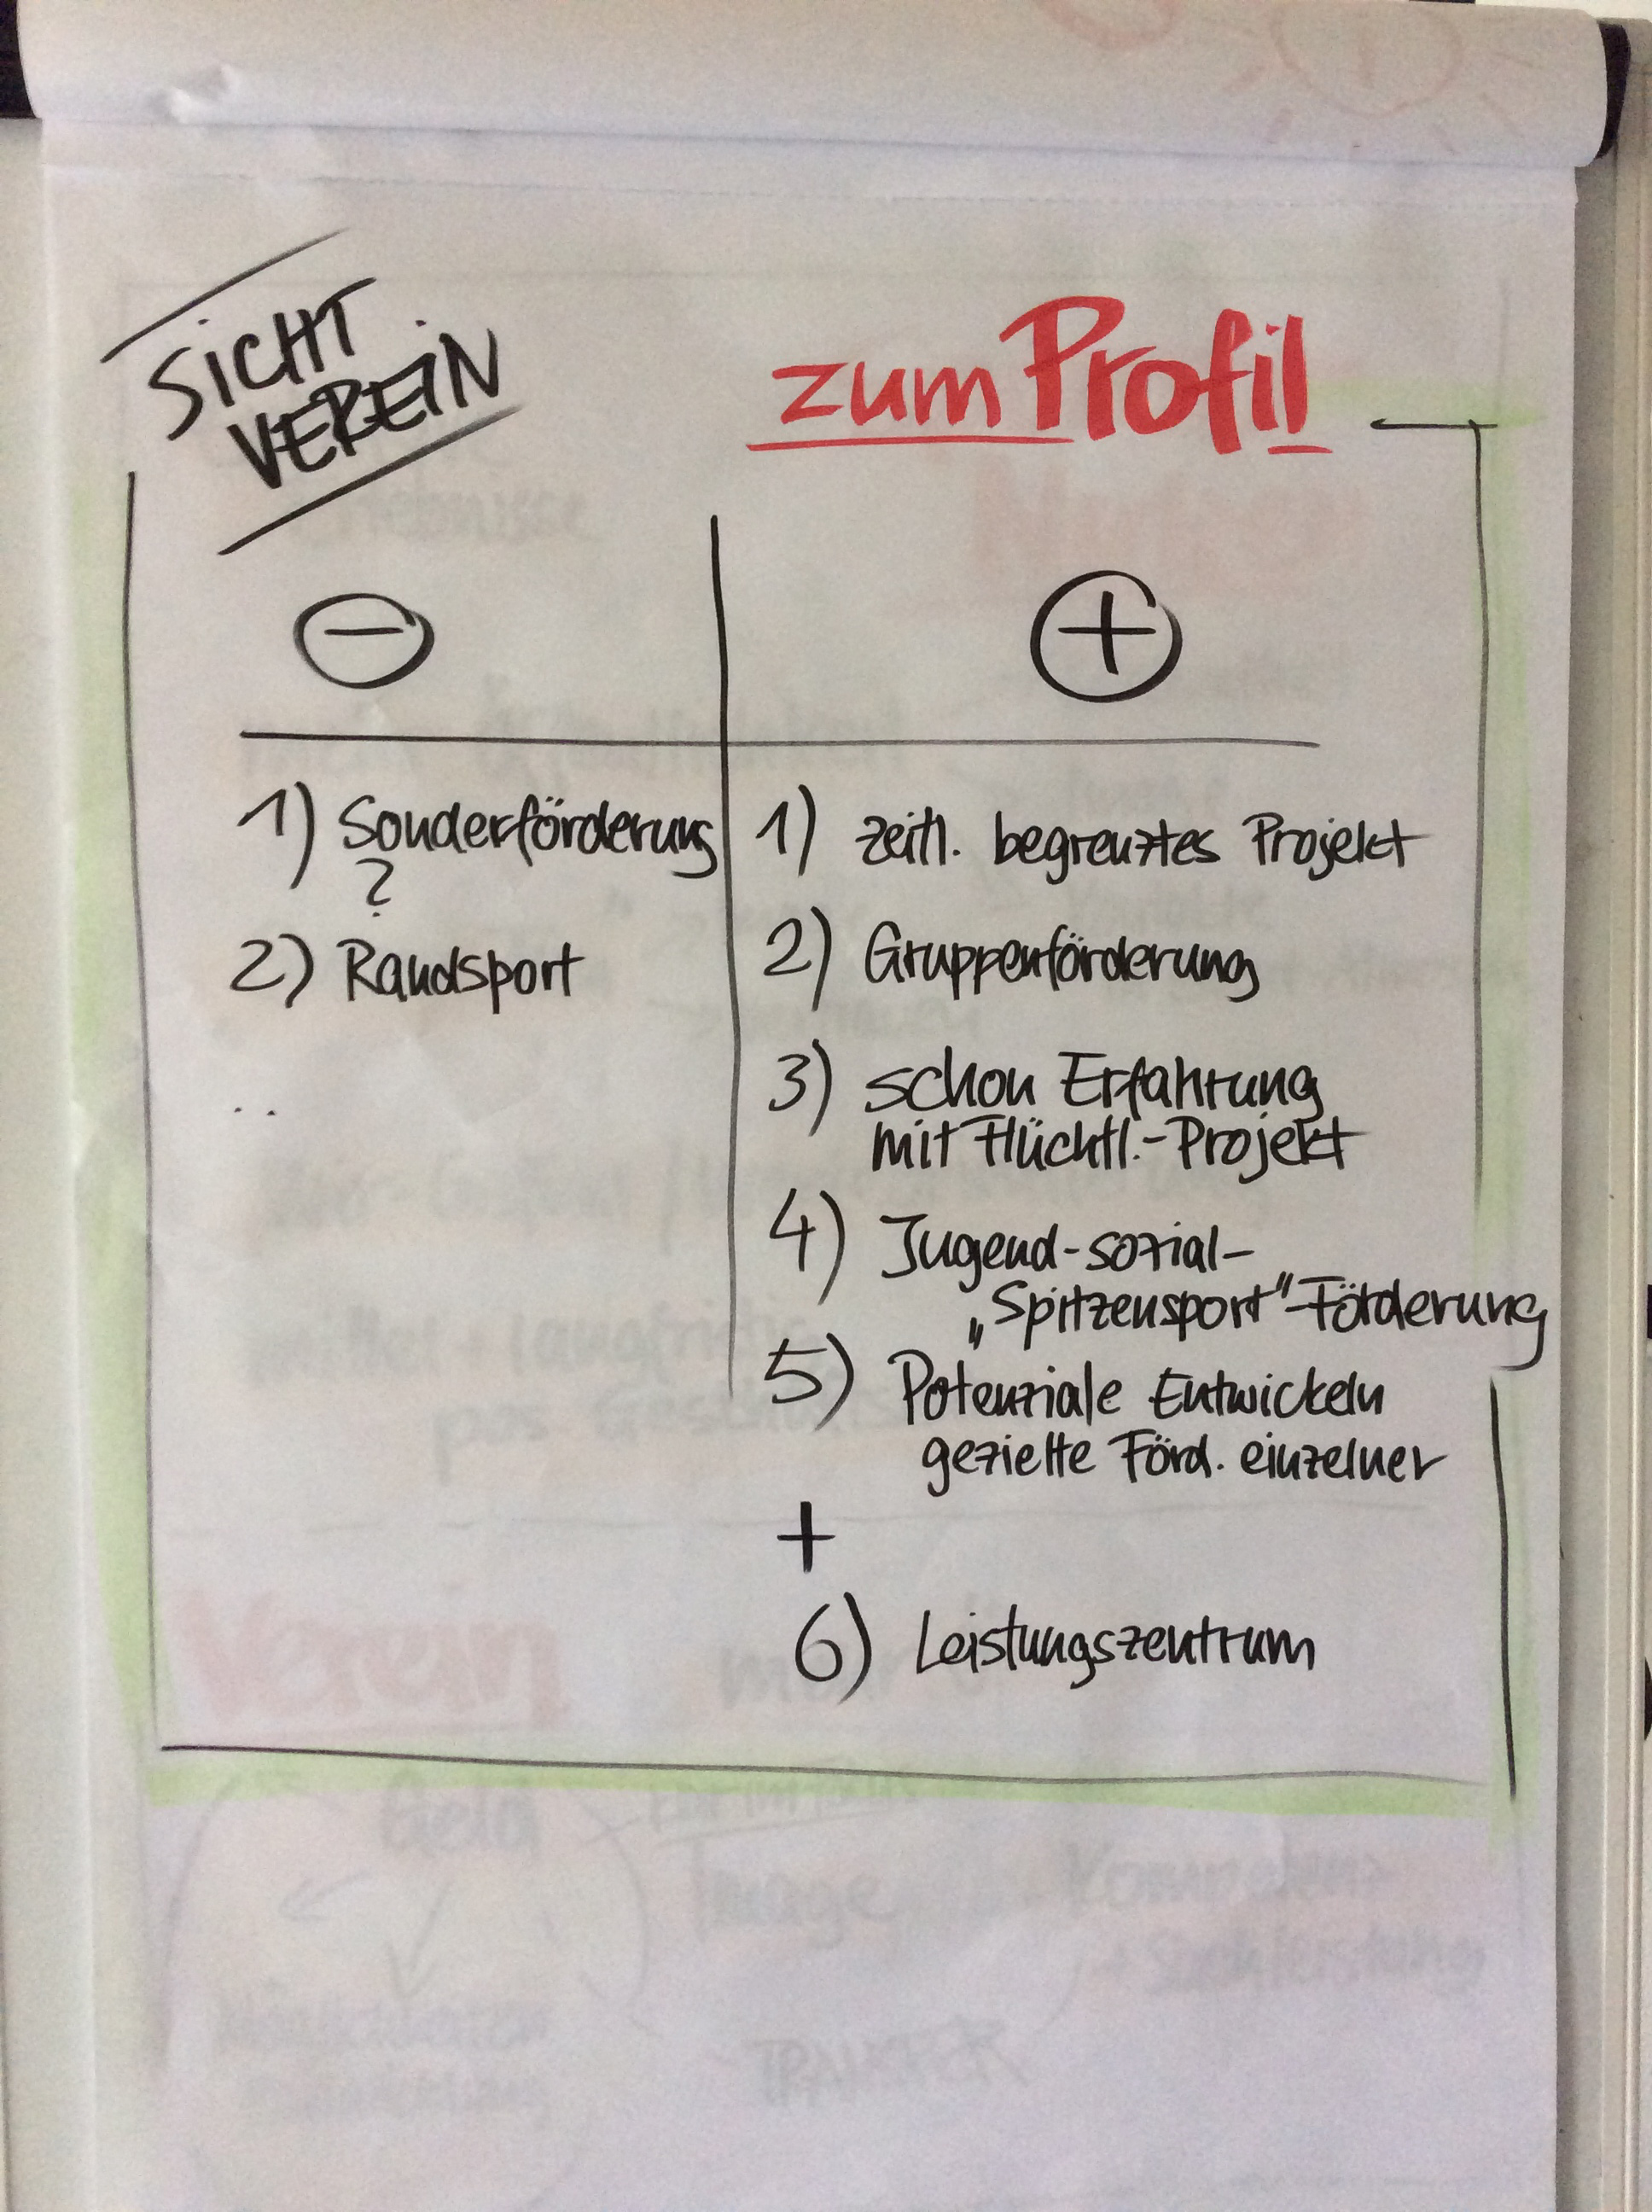 SICHT
VEREIN
zum Profil
−
+
1) Sonderförderung
?
2) Randsport
1) zeitl. begrenztes Projekt
2) Gruppenförderung
3) schon Erfahrung
mit Flüchtl.-Projekt
4) Jugend-sozial-
„Spitzensport"-Förderung
5) Potenziale Entwickeln
gezielte Förd. einzelner
+
6) Leistungszentrum
Verein
Geld
Image